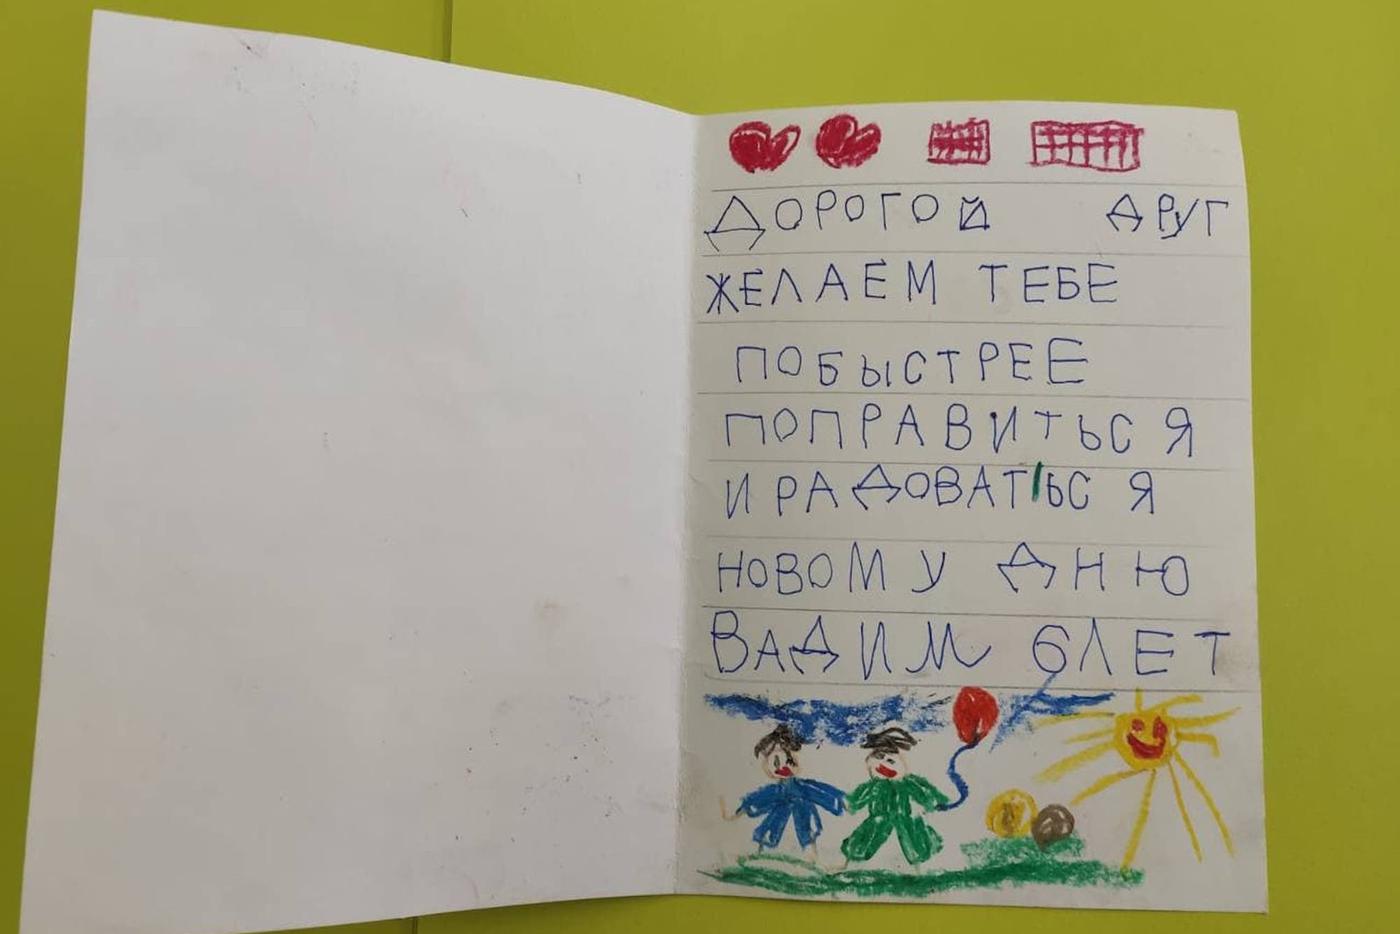 ДОРОГОЙ ДРУГ
ЖЕЛАЕМ ТЕБЕ
ПОБЫСТРЕЕ
ПОПРАВИТЬСЯ
И РАДОВАТЬСЯ
НОВОМУ ДНЮ
ВАДИМ 6ЛЕТ